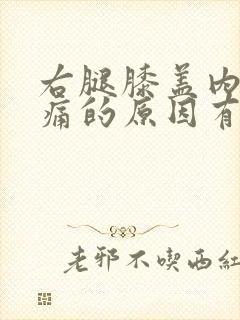 右腿膝盖内
痛的原因有
老邪不喫西紅